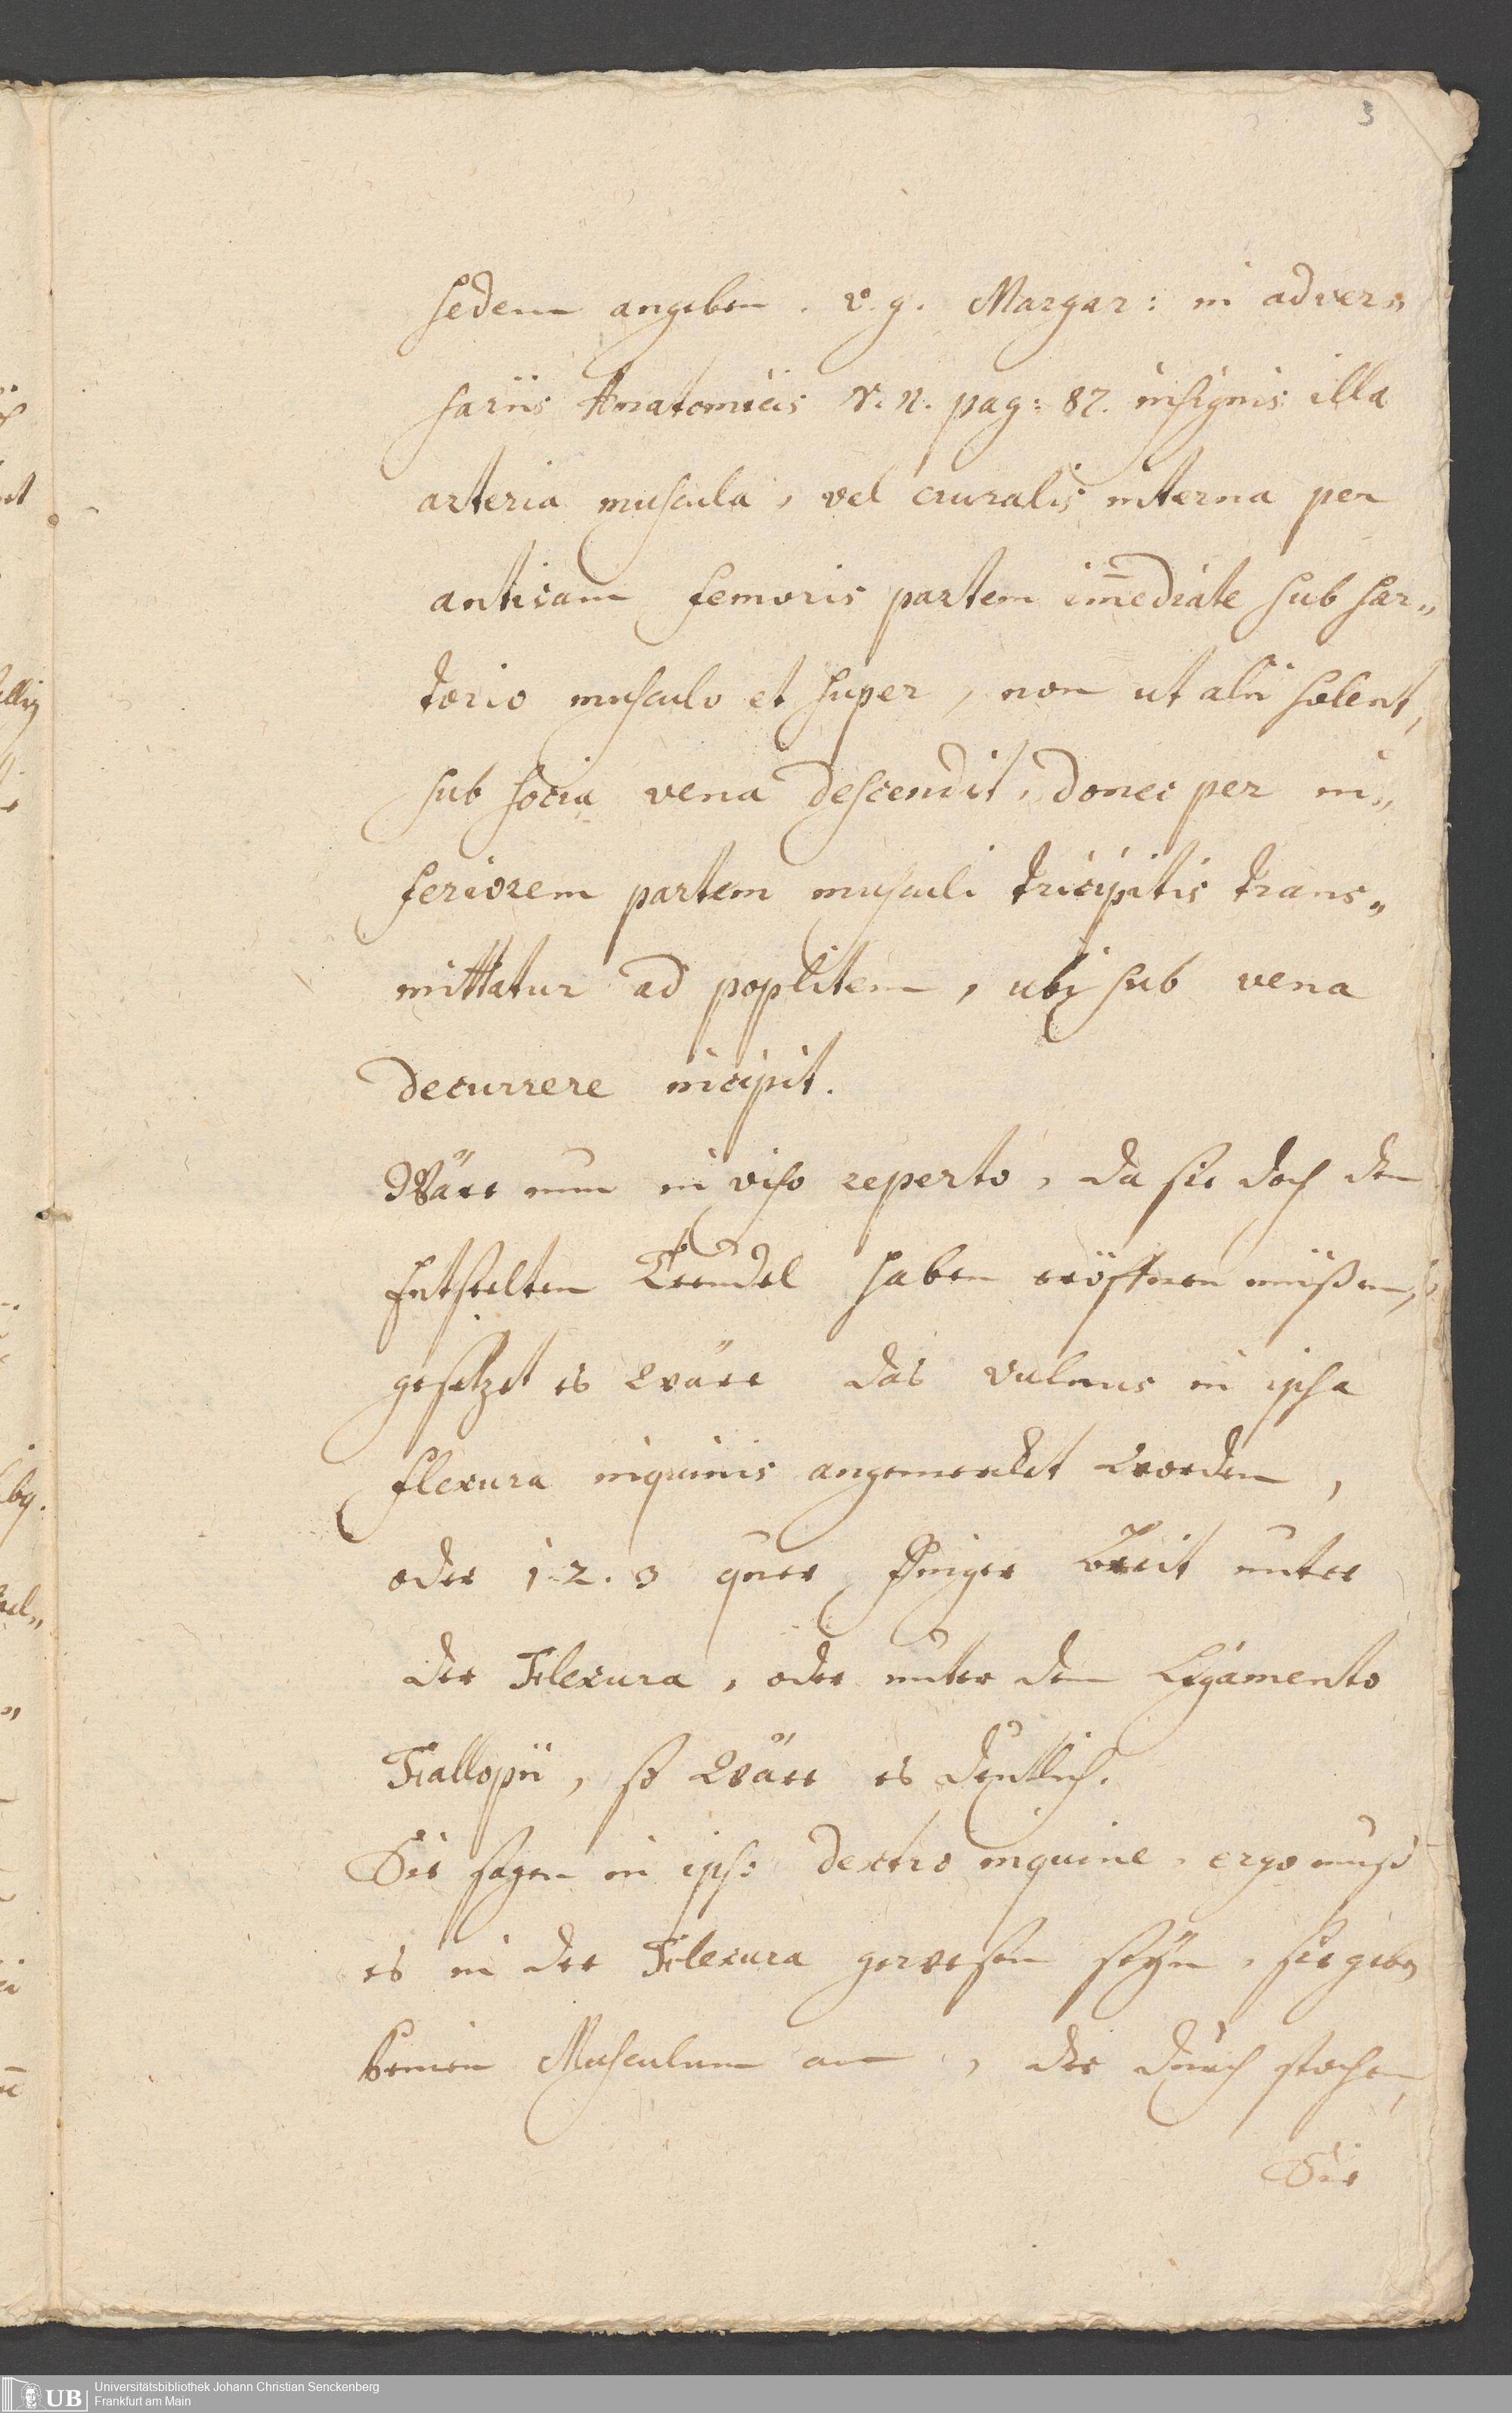 3
sedem angeben. v. g. Margar: in adver„
sariis Anatomicis V. n. pag: 87. insignis illa
arteria muscula, vel cruralis interna per
anticam femoris partem im̄ediate sub sar„
torio musculo et super, non ut alii solent,
sub socia vena descendit, donec per in„
feriorem partem musculi tricipitis trans„
mittatur ad poplitem, ubi sub vena
decurrere incipit.
Wäre nun in viso reperto, da sie doch den
Entselten haben eröffnen müßen,
gesetzet es wäre das vulnus in ipsa
flexura inguinis angemerket worden,
oder 1. 2. 3 quer Finger breit unter
der Flexura, oder unter dem Ligamento
Fallopii, so wäre es deutlich.
Sie sagen in ips: dextro inguine, ergo muß
es in der Flexura gewesen seyn, sie geben
keinen Musculum an, der durch stochen,
Sie
UB
Universitätsbibliothek Johann Christian Senckenberg
Frankfurt am Main